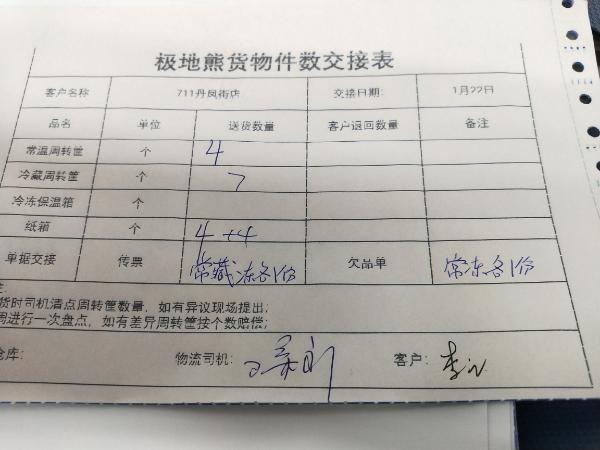 极地熊货物件数交接表
客户名称 711丹凤街店 交接日期: 1月22日
品名 单位 送货数量 客户退回数量 备注
常温周转筐 个 4
冷藏周转筐 个 7
冷冻保温箱 个
纸箱 个 4+4
单据交接 传票 常藏冻各1份 欠品单 常冻各1份
货时司机清点周转筐数量,如有异议现场提出;
周进行一次盘点,如有差异周转筐按个数赔偿;
仓库: 物流司机: 客户: